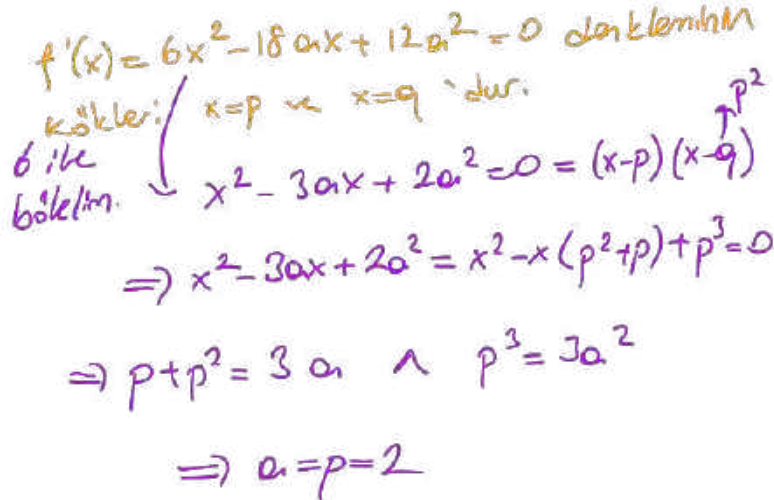 f'(x) = 6x² - 18ax + 12a² = 0 denkleminin
kökleri x=p ve x=q 'dur.
6 ile
bölelim. x² - 3ax + 2a² = 0 = (x-p)(x-q) p²
⇒ x² - 3ax + 2a² = x² - x(p²+p) + p³ = 0
⇒ p+p² = 3a ∧ p³ = 3a²
⇒ a = p = 2